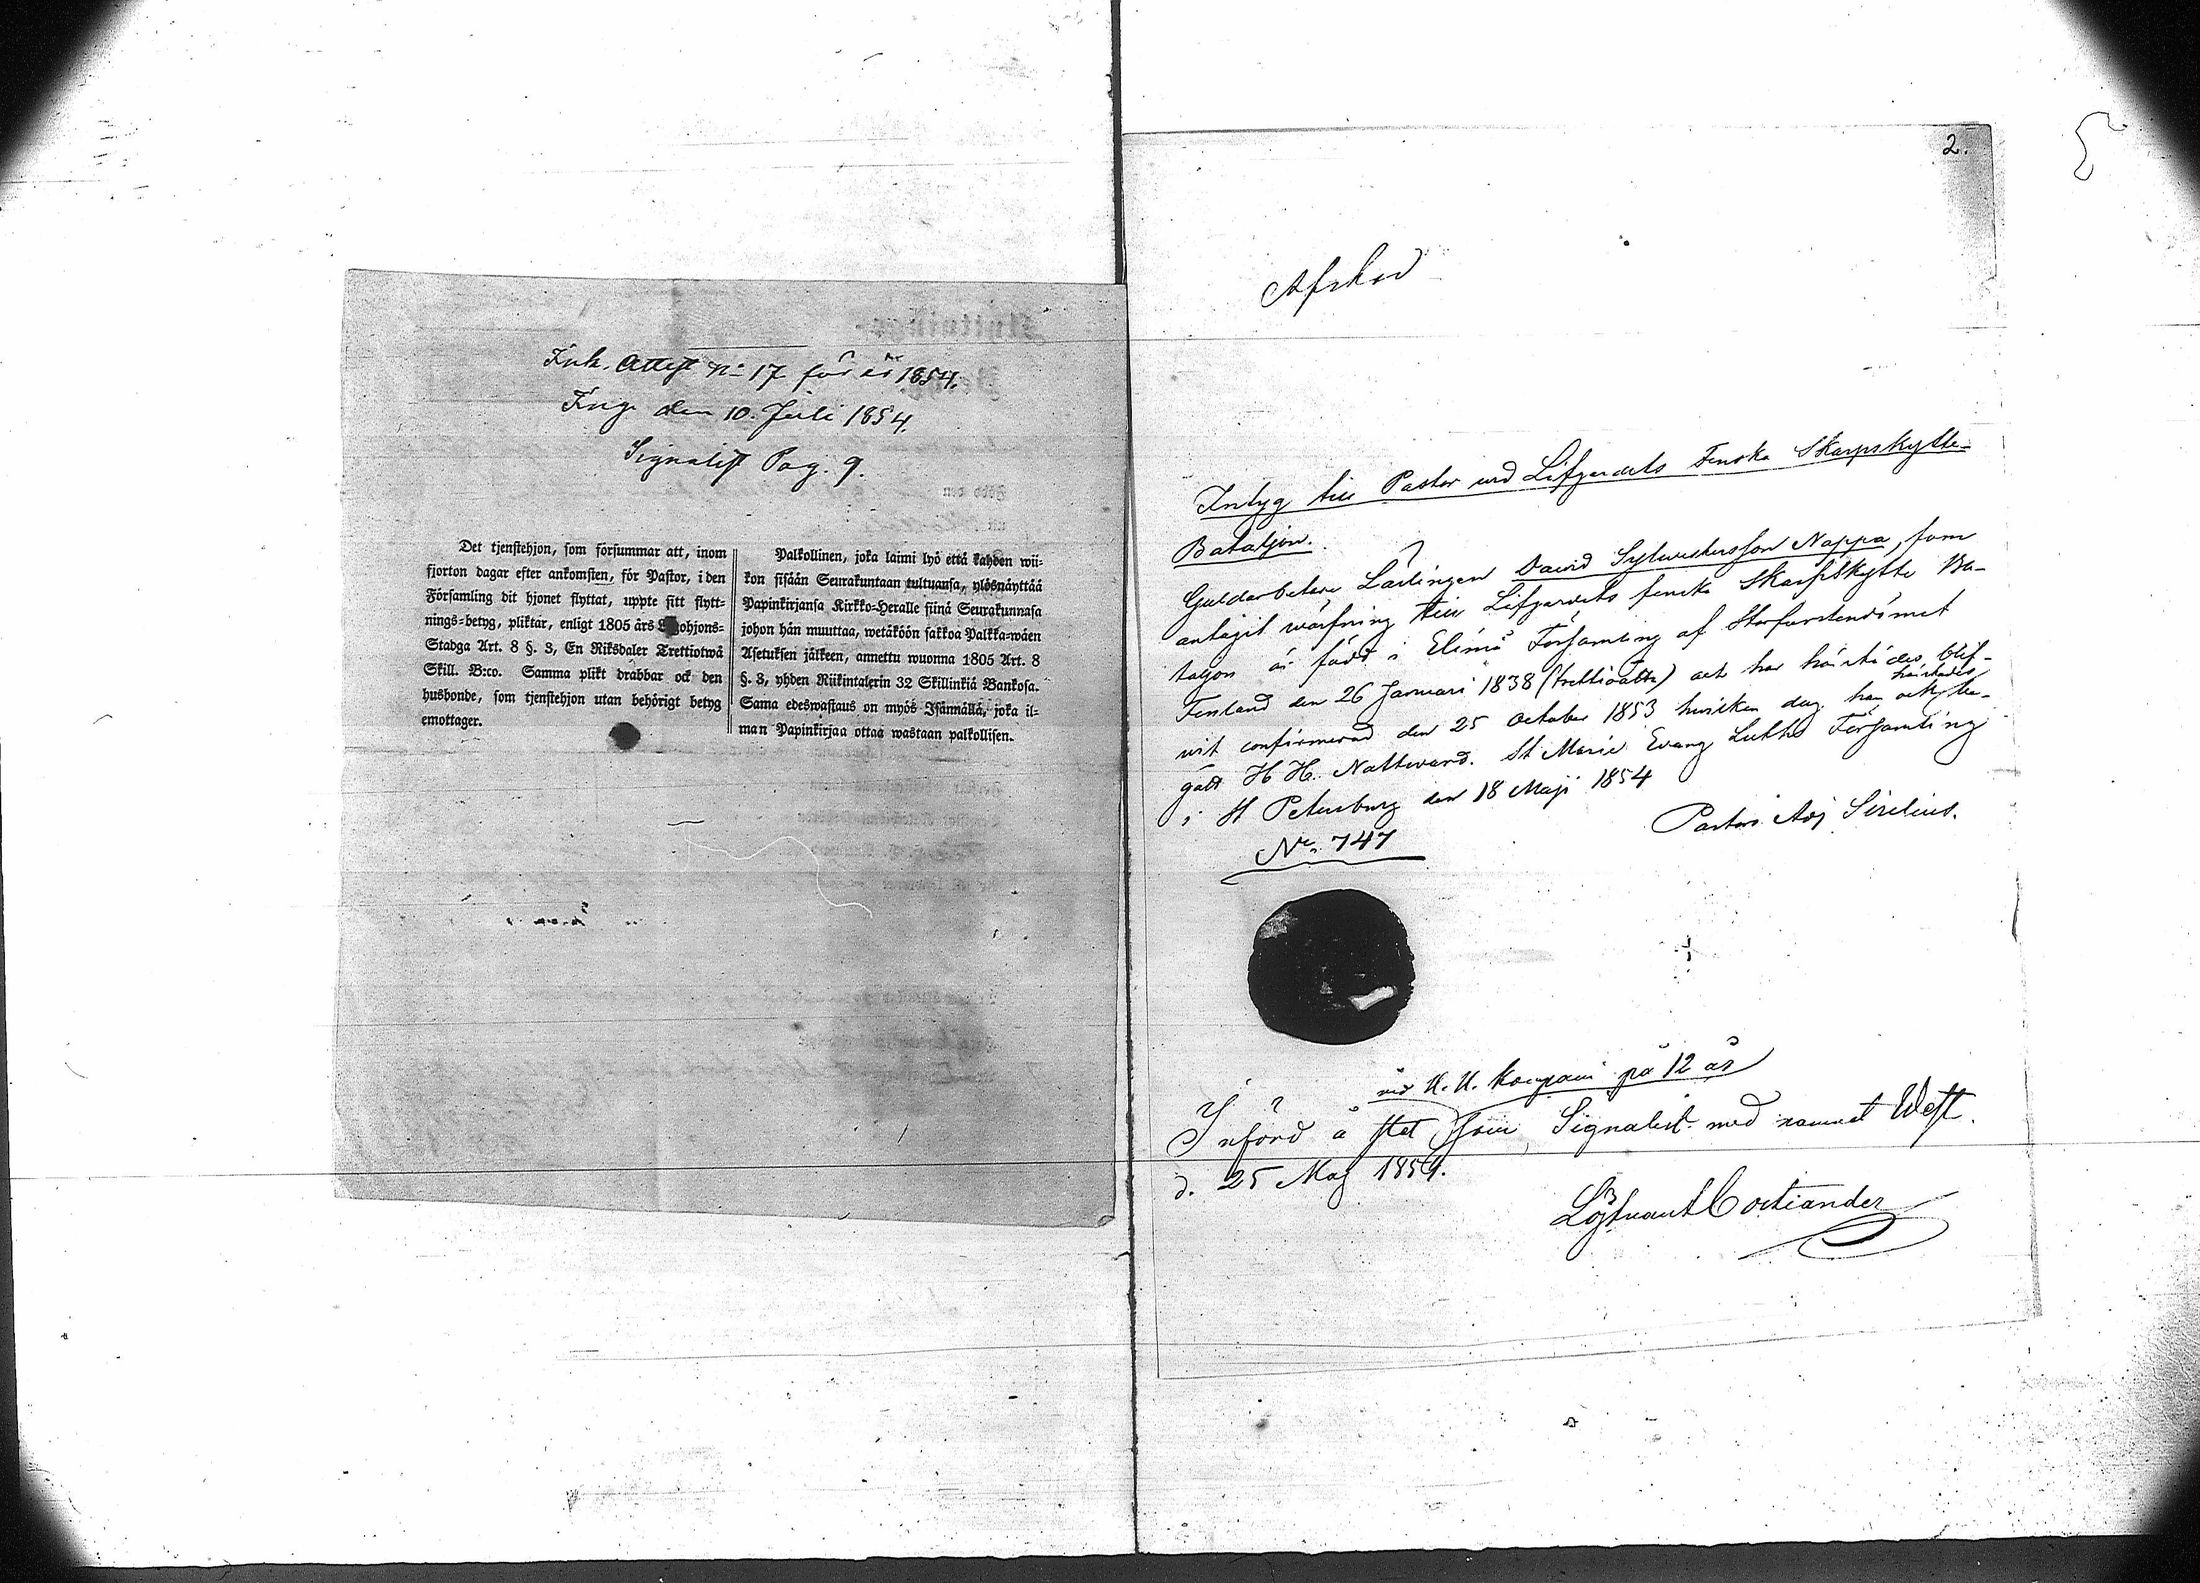 Ink. Attest No 17 för år 1854.
Ing. den 10. Juli 1854.
Signalist Pag. 9.
Det tjenstehjon, som försummar att, inom
fjorton dagar efter ankomsten, för Pastor, i den
Församling dit hjonet flyttat, uppte sitt flytt-
nings-betyg, pliktar, enligt 1805 års Legohjons-
Stadga Art. 8 §. 3, En Riksdaler Trettiotwå
Skill. B:co. Samma plikt drabbar ock den
husbonde, som tjenstehjon utan behörigt betyg
emottager.
Palkollinen, joka laimi lyö että kahden wii-
kon sisään Seurakuntaan tultuansa, ylösnäyttää
Papinkirjansa Kirkko-Heralle siinä Seurakunnasa
johon hän muuttaa, wetäköön sakkoa Palkka-wäen
Asetuksen jälkeen, annettu wuonna 1805 Art. 8
§. 3, yhden Riikintalerin 32 Skillinkiä Bankosa.
Sama edeswastaus on myös Isännällä, joka il-
man Papinkirjaa ottaa wastaan palkollisen.
2.
Afskrd
Intyg till Pastor wid Lifgardets Finska Skarpskytte-
Bataljon.
Guldarbetare Lärlingen David Sylwestersson Nappa, som
antagit wärfning till Lifgardets finska Skarpskytte Ba-
taljon är född i Elimä Församling af Storfurstendömet
Finland den 26 Januari 1838 (trettioåtta) och har härstädes blif-
wit confirmerad den 25 October 1853 hwilken dag han ock härstädes be-
gått H. H. Nattward. St Marie Evang Luthe Församling
i St Petersburg den 18 Maji 1854
Pastors Adj Sirelius.
No 747
vid U. U. Kompani på 12 år
Införd å stat som Signalist med namnet West.
d. 25 Maj 1854.
Löjtnant Costiander